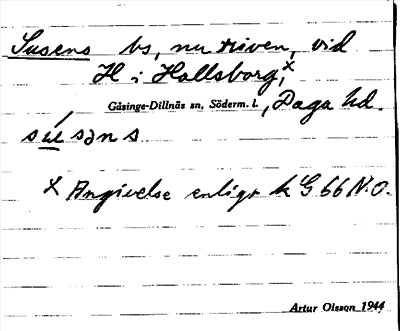 Susens bs, nu riven, vid
H i Hallsborg,x
Gåsinge-Dillnäs sn, Söderm. l., Daga hd.
súsəns
x Angivelse enligt k G 66 N.O.
Artur Olsson 1944